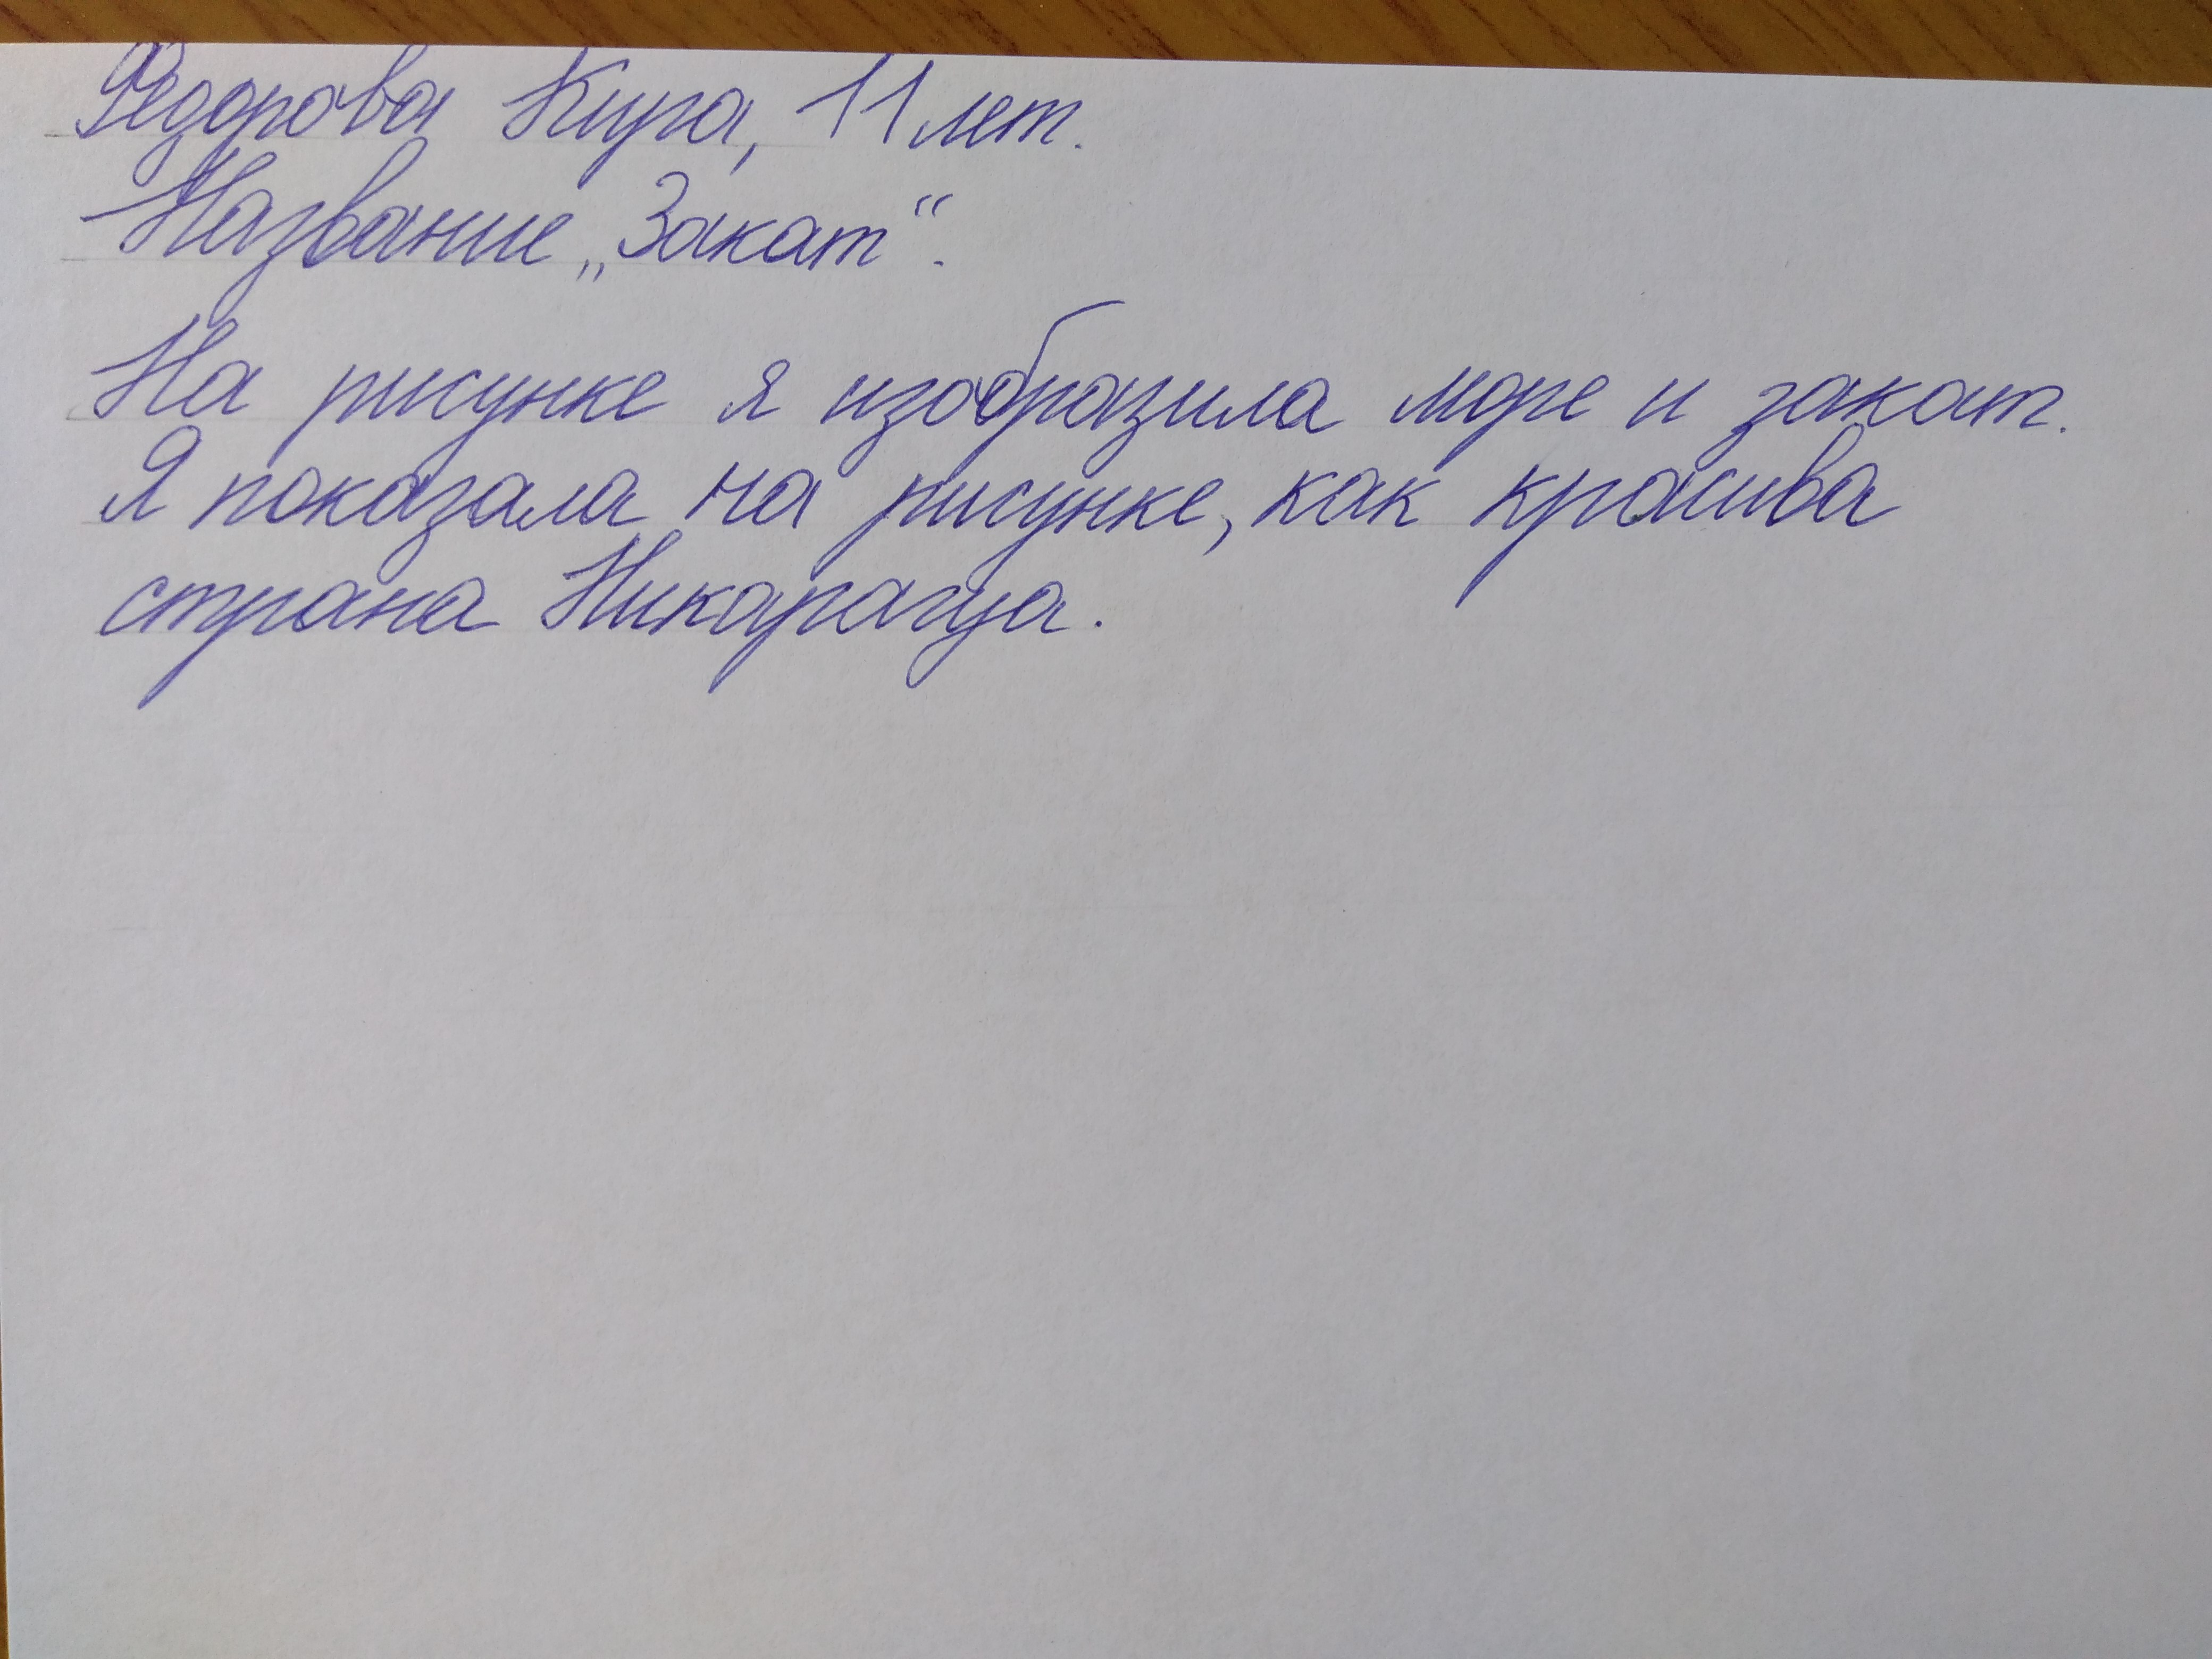 Федорова Кира, 11 лет.
Название „Закат“.
На рисунке я изобразила море и закат.
Я показала на рисунке, как красива
страна Никарагуа.